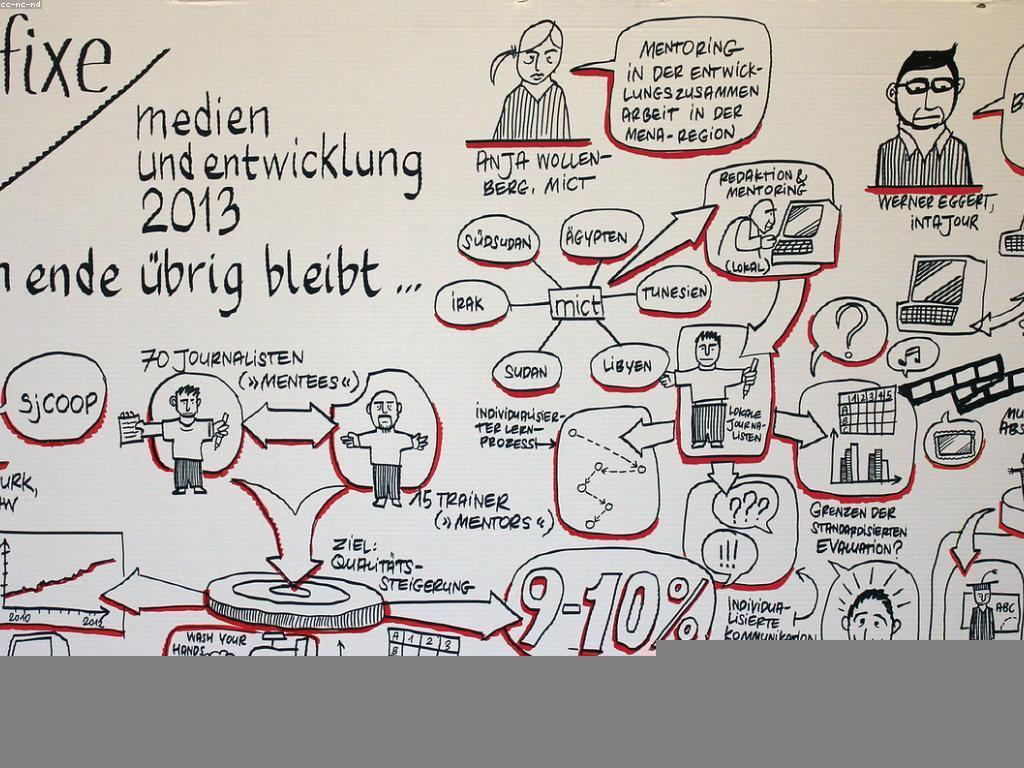 cc-nc-nd
fixe
medien
und entwicklung
2013
ende übrig bleibt ...
MENTORING
IN DER ENTWICK-
LUNGSZUSAMMEN
ARBEIT IN DER
MENA-REGION
ANJA WOLLEN-
BERG, MICT
WERNER EGGERT,
INTAJOUR
REDAKTION &
MENTORING
(LOKAL)
SÜDSUDAN
ÄGYPTEN
IRAK
mict
TUNESIEN
SUDAN
LIBYEN
LOKALE
JOURNA-
LISTEN
?
1 2 3 4 5
A
B
SjCOOP
70 JOURNALISTEN
(»MENTEES«)
15 TRAINER
(»MENTORS«)
INDIVIDUALISIER-
TER LERN-
PROZESS
???
!!!
GRENZEN DER
STANDARDISIERTEN
EVALUATION?
ZIEL:
QUALITÄTS-
STEIGERUNG
9-10%
INDIVIDUA-
LISIERTE
KOMMUNIKATION
ABC
2010
2012
WASH YOUR
HANDS
A 1 2 3
B